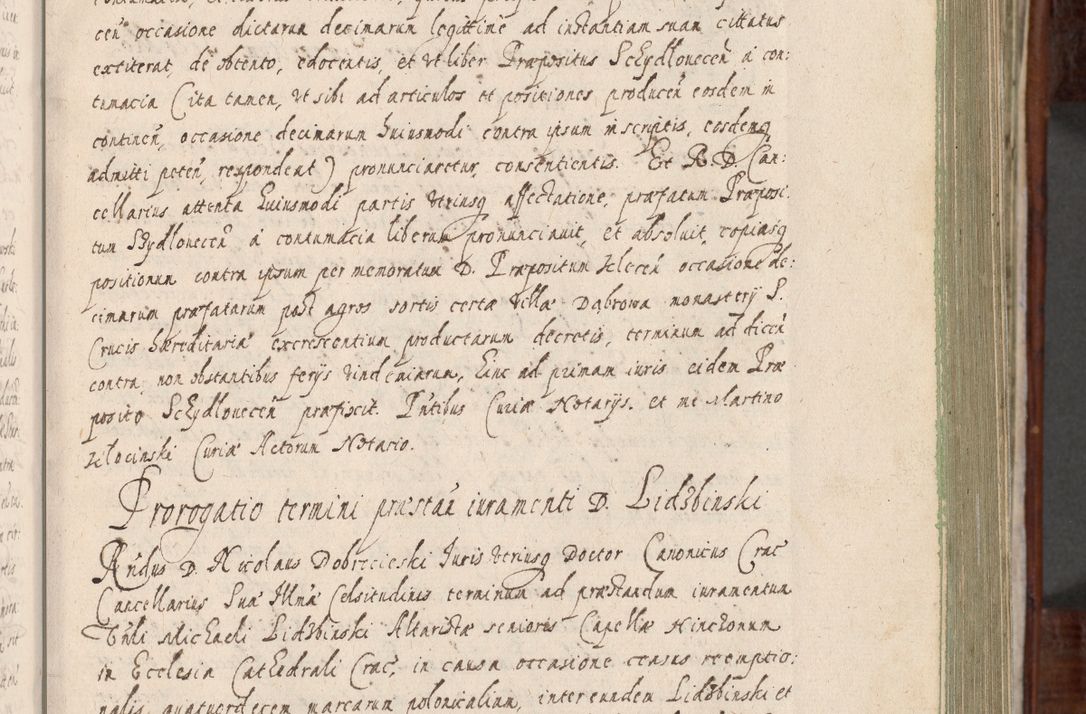 cen̄ occasione dictarum decimarum legittime ad instantiam suam cittatus
extiterat, de obtento, edocentis, et ut liber Præpositus Schydlouecen̄ á con:
tumacia (ita tamen, ut sibi ad articulos et positiones producen̄ eosdem in
continen̄, occasione decimarum huiusmodi contra ipsum in scriptis, eosdemq
admitti peten̄, respondeat) pronunciaretur, consentientis. Et R. D. Can:
cellarius attenta huiusmodi partis utriusq affectatione, præfatum Præposi:
tum Schydlouecen̄ á contumacia liberum pronunciauit, et absoluit, copiasq
positionum contra ipsum per memoratum D. Præpositum Kelecen̄ occasione de:
cimarum præfatarum post agros sortis certæ Villæ Dąbrowa monasterij S.
Crucis hæreditariæ excrescentium productarum decretis, terminum ad dicen̄
contra, non obstantibus ferijs vindemiarum, hinc ad primam iuris eidem Præ
posito Schydlouecen̄ præfixit. Pn̄tibus Curiæ Notarijs. et me Martino
Kłocinski Curiæ Actorum Notario.
Prorogatio termini præstan̄ iuramenti D. Lidzbinski
Rn̄dus D. Nicolaus Dobrocieski Iuris utriusq Doctor Canonicus Crac̄
Cancellarius Suæ Illmæ Celsitudinis terminum ad præstandum iuramentum
Michaeli Lidzbinski Altaristæ senioris Capellæ Hinczonum
in Ecclesia Cathedrali Crac̄, in causa occasione census reemptio:
nalis, quatuordecem marcarum polonicalium, inter eundem Lidzbinski et